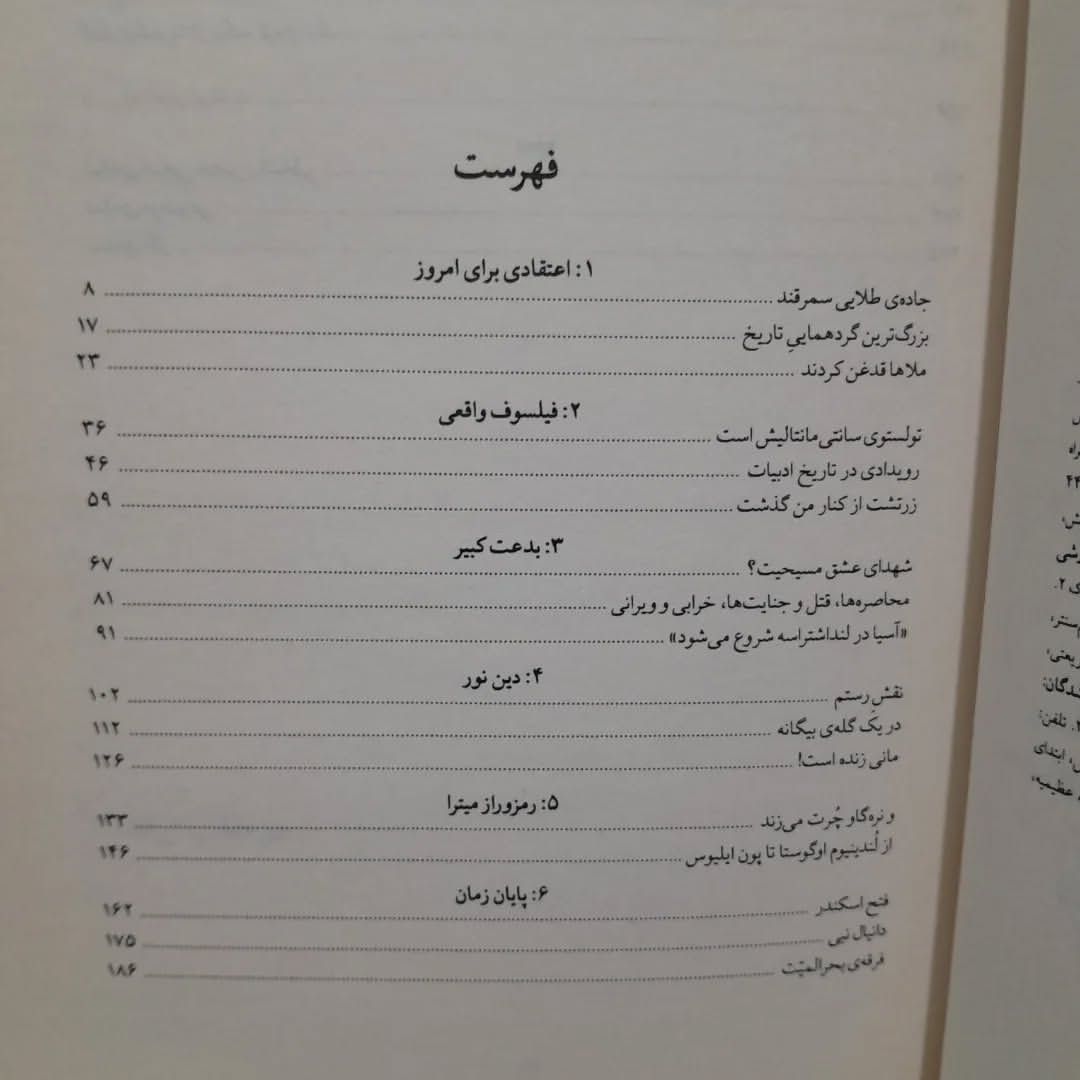 فهرست
۱: اعتقادی برای امروز
جاده‌ی طلایی سمرقند ۸
بزرگ‌ترین گردهماییِ تاریخ ۱۷
ملاها قدغن کردند ۲۳
۲: فیلسوف واقعی
تولستوی سانتی‌مانتالیش است ۳۶
رویدادی در تاریخ ادبیات ۴۶
زرتشت از کنار من گذشت ۵۹
۳: بدعت کبیر
شهدای عشق مسیحیت؟ ۶۷
محاصره‌ها، قتل و جنایت‌ها، خرابی و ویرانی ۸۱
«آسیا در لنداشتراسه شروع می‌شود» ۹۱
۴: دین نور
نقشِ رستم ۱۰۲
در یک گله‌ی بیگانه ۱۱۲
مانی زنده است! ۱۲۶
۵: رمزوراز میترا
و نره‌گاو چُرت می‌زند ۱۳۳
از لُندینیوم اوگوستا تا پون ایلیوس ۱۴۶
۶: پایان زمان
فتح اسکندر ۱۶۲
دانیال نبی ۱۷۵
فرقه‌ی بحرالمیّت ۱۸۶
راه
۴۴
ی ۲.
تلفن:
ابتدای
عظیمیه،